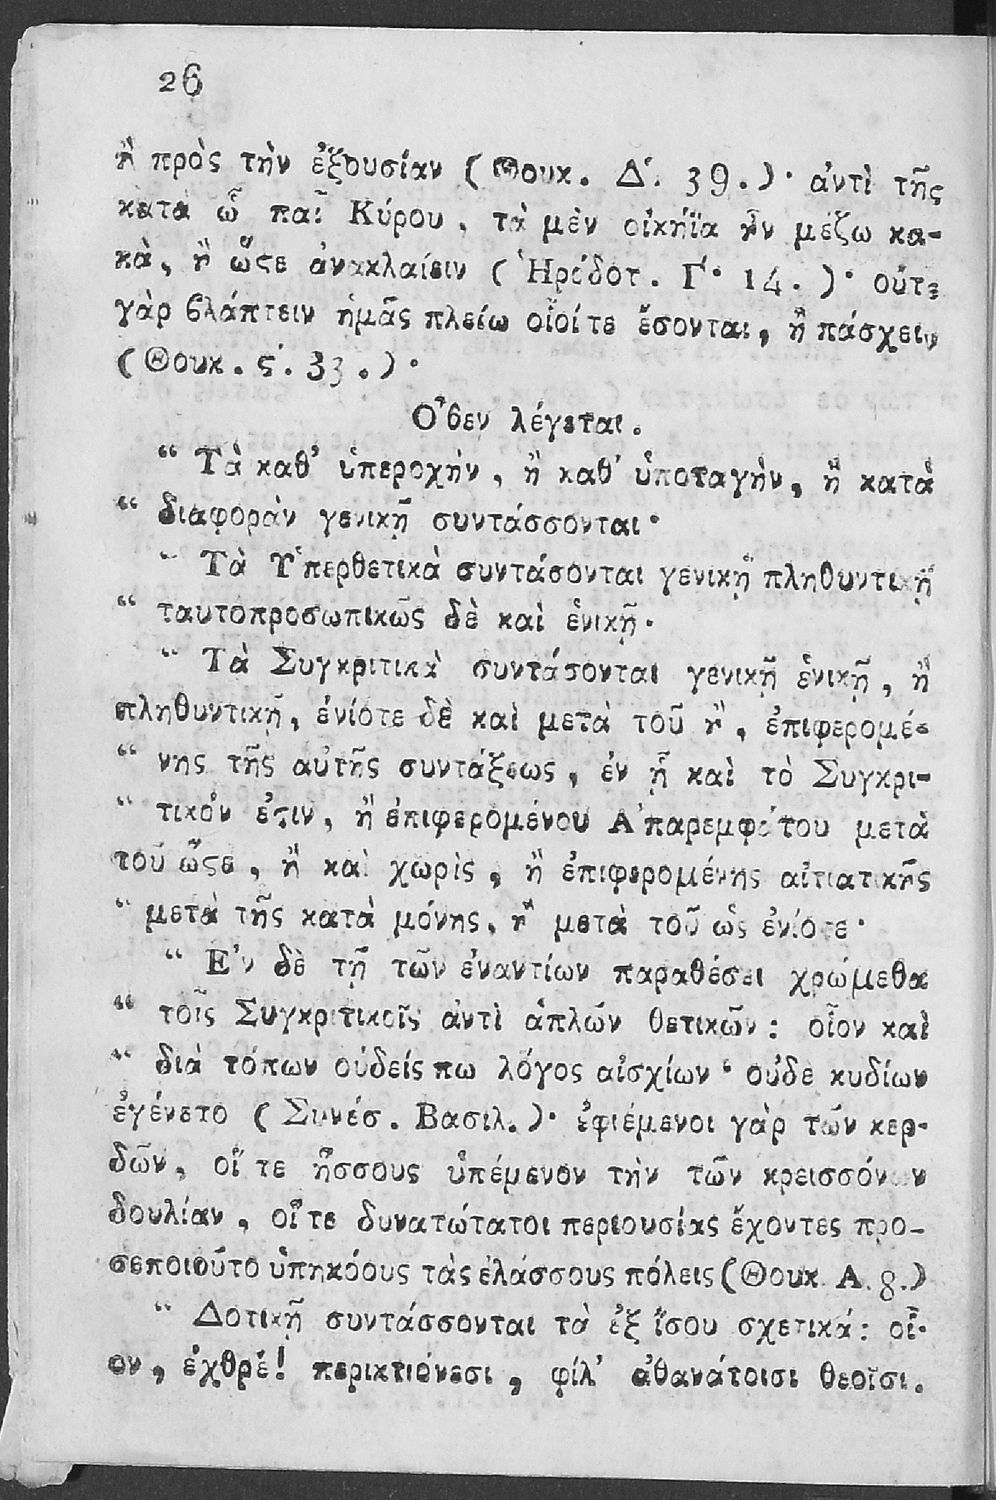 26
ἢ πρὸς τὴν ἐξουσίαν (Θουκ. Δ΄. 39.)· ἀντὶ τῆς
κατὰ ὦ παῖ Κύρου, τὰ μὲν οἰκήϊα ἦν μέζω κα-
κὰ, ἢ ὥςε ἀνακλαίειν (Ἡρόδοτ. Γ΄. 14.)· οὔτε
γὰρ βλάπτειν ἡμᾶς πλείω οἷοί τε ἔσονται, ἢ πάσχειν
(Θουκ. ς΄. 33.)·
Ὅθεν λέγεται.
“ Τὰ καθ’ ὑπεροχὴν, ἢ καθ’ ὑποταγὴν, ἢ κατὰ
“ διαφορὰν γενικῇ συντάσσονται·
“ Τὰ Ὑπερθετικὰ συντάσονται γενικῇ πληθυντικῇ
“ ταυτοπροσωπικῶς δὲ καὶ ἑνικῇ·
“ Τὰ Συγκριτικὰ συντάσονται γενικῇ ἑνικῇ, ἢ
πληθυντικῇ, ἐνίοτε δὲ καὶ μετὰ τοῦ ἢ, ἐπιφερομέ-
“ νης τῆς αὐτῆς συντάξεως, ἐν ᾗ καὶ τὸ Συγκρι-
“ τικόν ἐςιν, ἢ ἐπιφερομένου Ἀπαρεμφάτου μετὰ
τοῦ ὥςε, ἢ καὶ χωρὶς, ἢ ἐπιφερομένης αἰτιατικῆς
“ μετὰ τῆς κατὰ μόνης, ἢ μετὰ τοῦ ὡς ἐνίοτε·
“ Ἐν δὲ τῇ τῶν ἐναντίων παραθέσει χρώμεθα
“ τοῖς Συγκριτικοῖς ἀντὶ ἁπλῶν θετικῶν: οἷον καὶ
“ διὰ τόπων οὐδείς πω λόγος αἰσχίων· οὐδὲ κυδίων
ἐγένετο (Συνέσ. Βασιλ.)· ἐφιέμενοι γὰρ τῶν κερ-
δῶν, οἵ τε ἥσσους ὑπέμενον τὴν τῶν κρεισσόνων
δουλίαν, οἵ τε δυνατώτατοι περιουσίας ἔχοντες προ-
σεποιοῦτο ὑπηκόους τὰς ἐλάσσους πόλεις (Θουκ. Α. 8.)
“ Δοτικῇ συντάσσονται τὰ ἐξ ἴσου σχετικά: οἷ-
ον, ἐχθρέ! περικτιόνεσι, φίλ’ ἀθανάτοισι θεοῖσι.